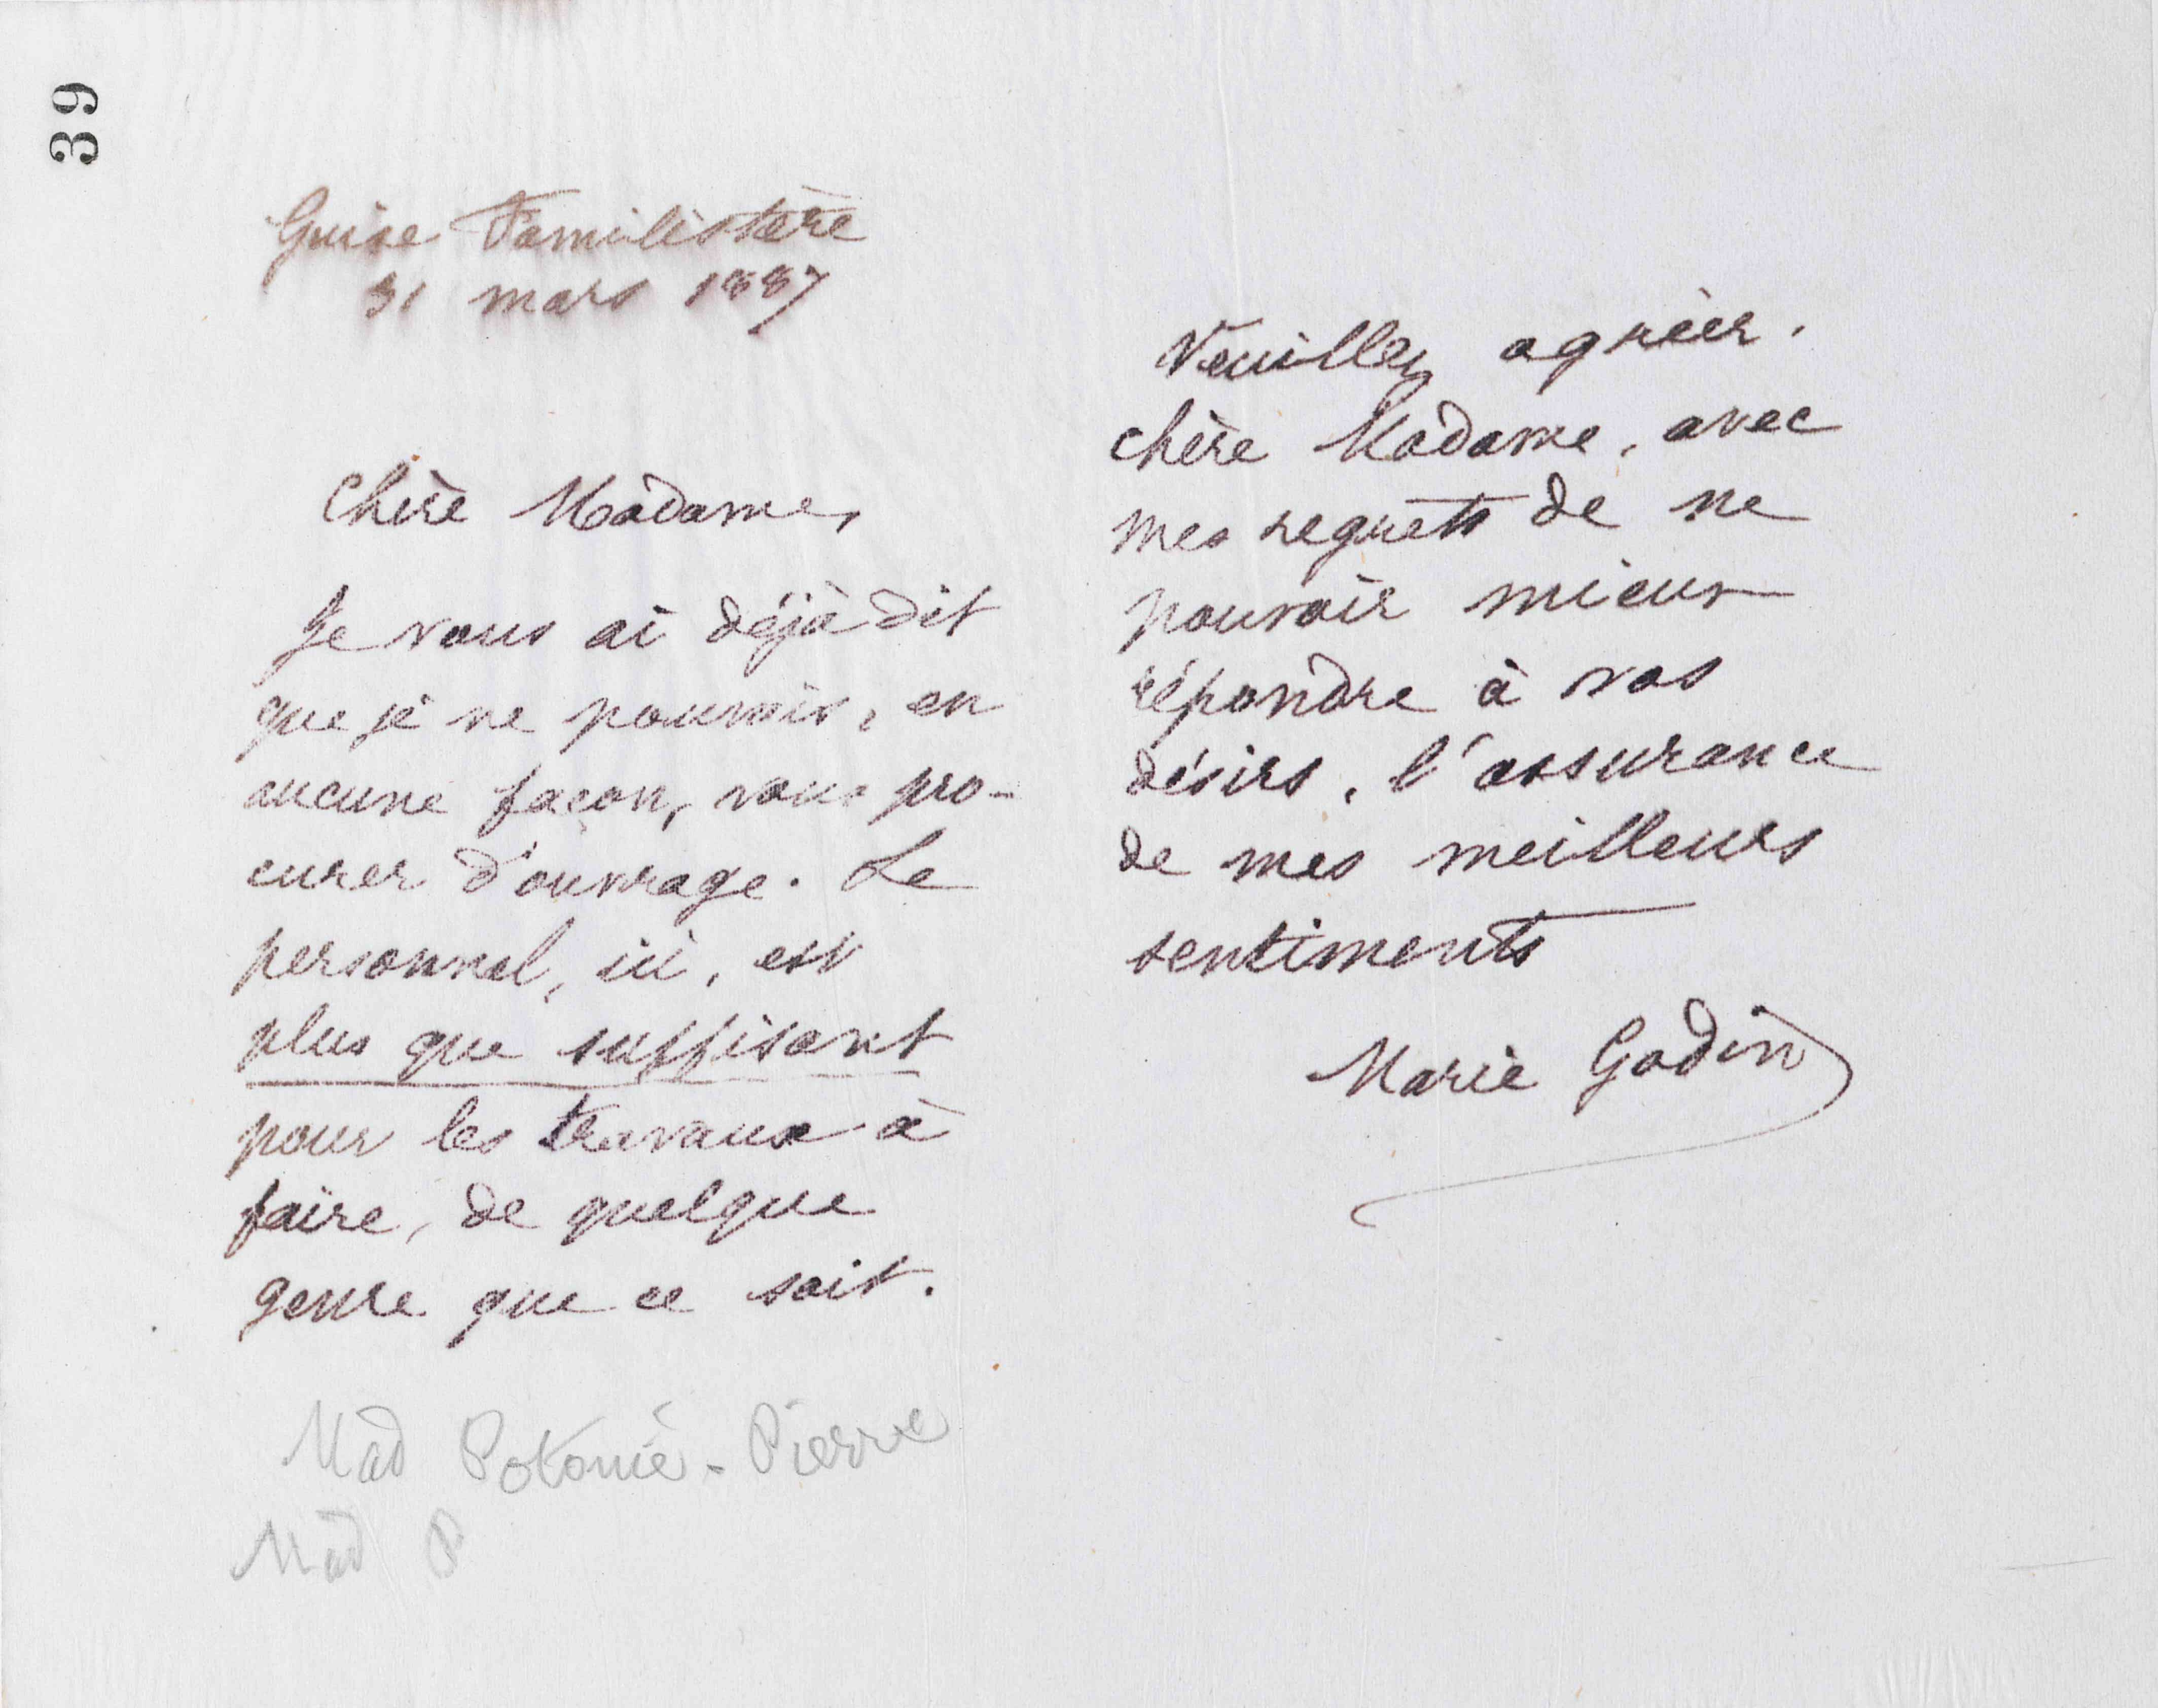 39
Guise Familistère
31 mars 1887
Chère Madame,
Je vous ai déjà dit
que je ne pouvais, en
aucune façon, vous pro-
curer d'ouvrage. Le
personnel, ici, est
plus que suffisant
pour les travaux à
faire, de quelque
genre que ce soit.
Mad Potonié-Pierre
Mad P
Veuillez agréer,
chère Madame, avec
mes regrets de ne
pouvoir mieux
répondre à vos
désirs, l'assurance
de mes meilleurs
sentiments
Marie Godin